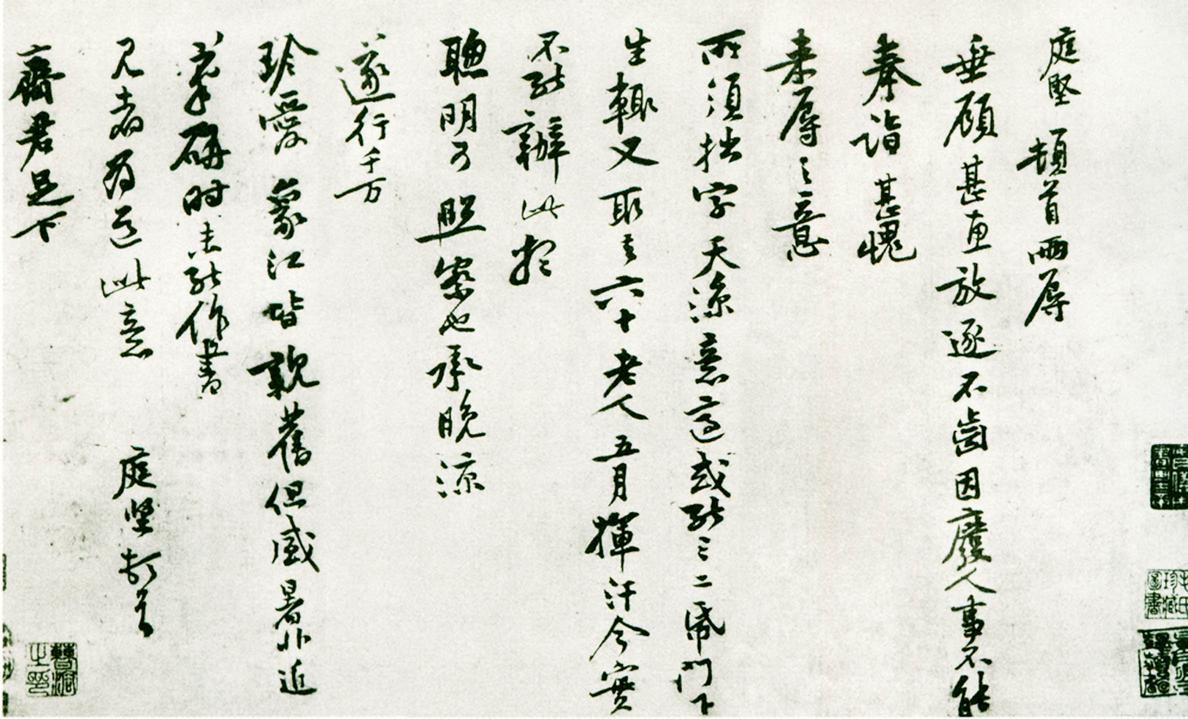 庭堅頓首兩辱
垂顧甚惠放逐不齒因廢人事不能
奉詣甚愧
来辱之意
所須拙字天涼意適或能三二帋門下
生輙又取去六十老人五月揮汗今實
不能辦此想
聰明可照察也承晚涼
遂行千万
珍愛象江皆親舊但盛暑非近
筆研時未能作書
見者為道此意　庭堅頓首
齊君足下